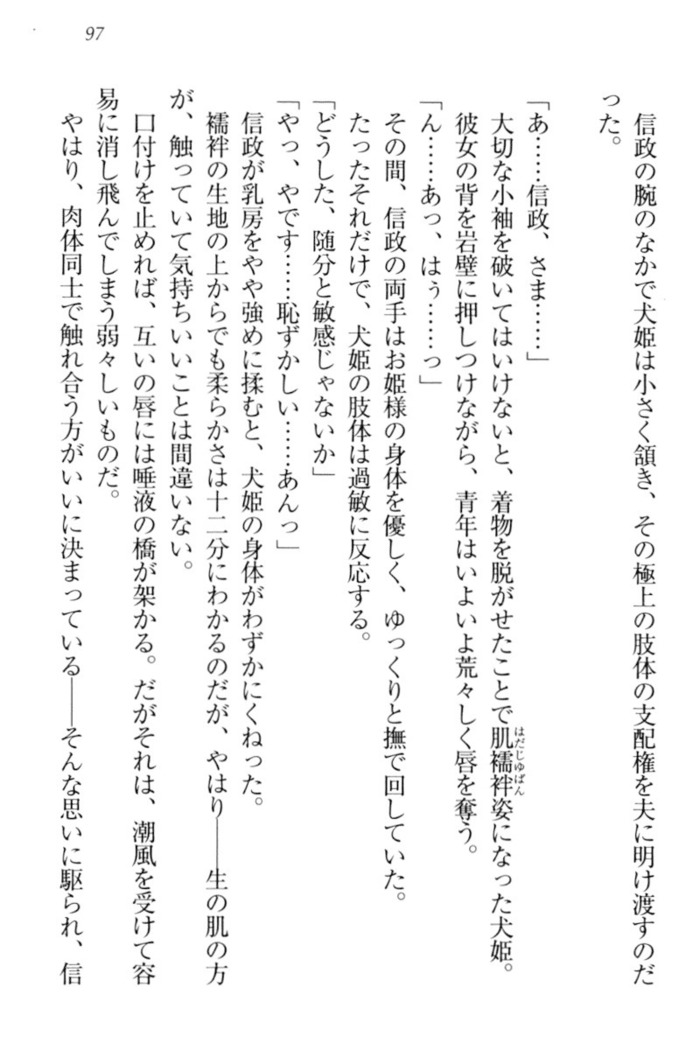 97
信政の腕のなかで犬姫は小さく頷き、その極上の肢体の支配権を夫に明け渡すのだ
った。
「あ……信政、さま……」
大切な小袖を破いてはいけないと、着物を脱がせたことで肌襦袢姿になった犬姫。
はだじゅばん
彼女の背を岩壁に押しつけながら、青年はいよいよ荒々しく唇を奪う。
「ん……あっ、はぅ……っ」
その間、信政の両手はお姫様の身体を優しく、ゆっくりと撫で回していた。
たったそれだけで、犬姫の肢体は過敏に反応する。
「どうした、随分と敏感じゃないか」
「やっ、やです……恥ずかしい……あんっ」
信政が乳房をやや強めに揉むと、犬姫の身体がわずかにくねった。
襦袢の生地の上からでも柔らかさは十二分にわかるのだが、やはり――生の肌の方
が、触っていて気持ちいいことは間違いない。
口付けを止めれば、互いの唇には唾液の橋が架かる。だがそれは、潮風を受けて容
易に消し飛んでしまう弱々しいものだ。
やはり、肉体同士で触れ合う方がいいに決まっている――そんな思いに駆られ、信